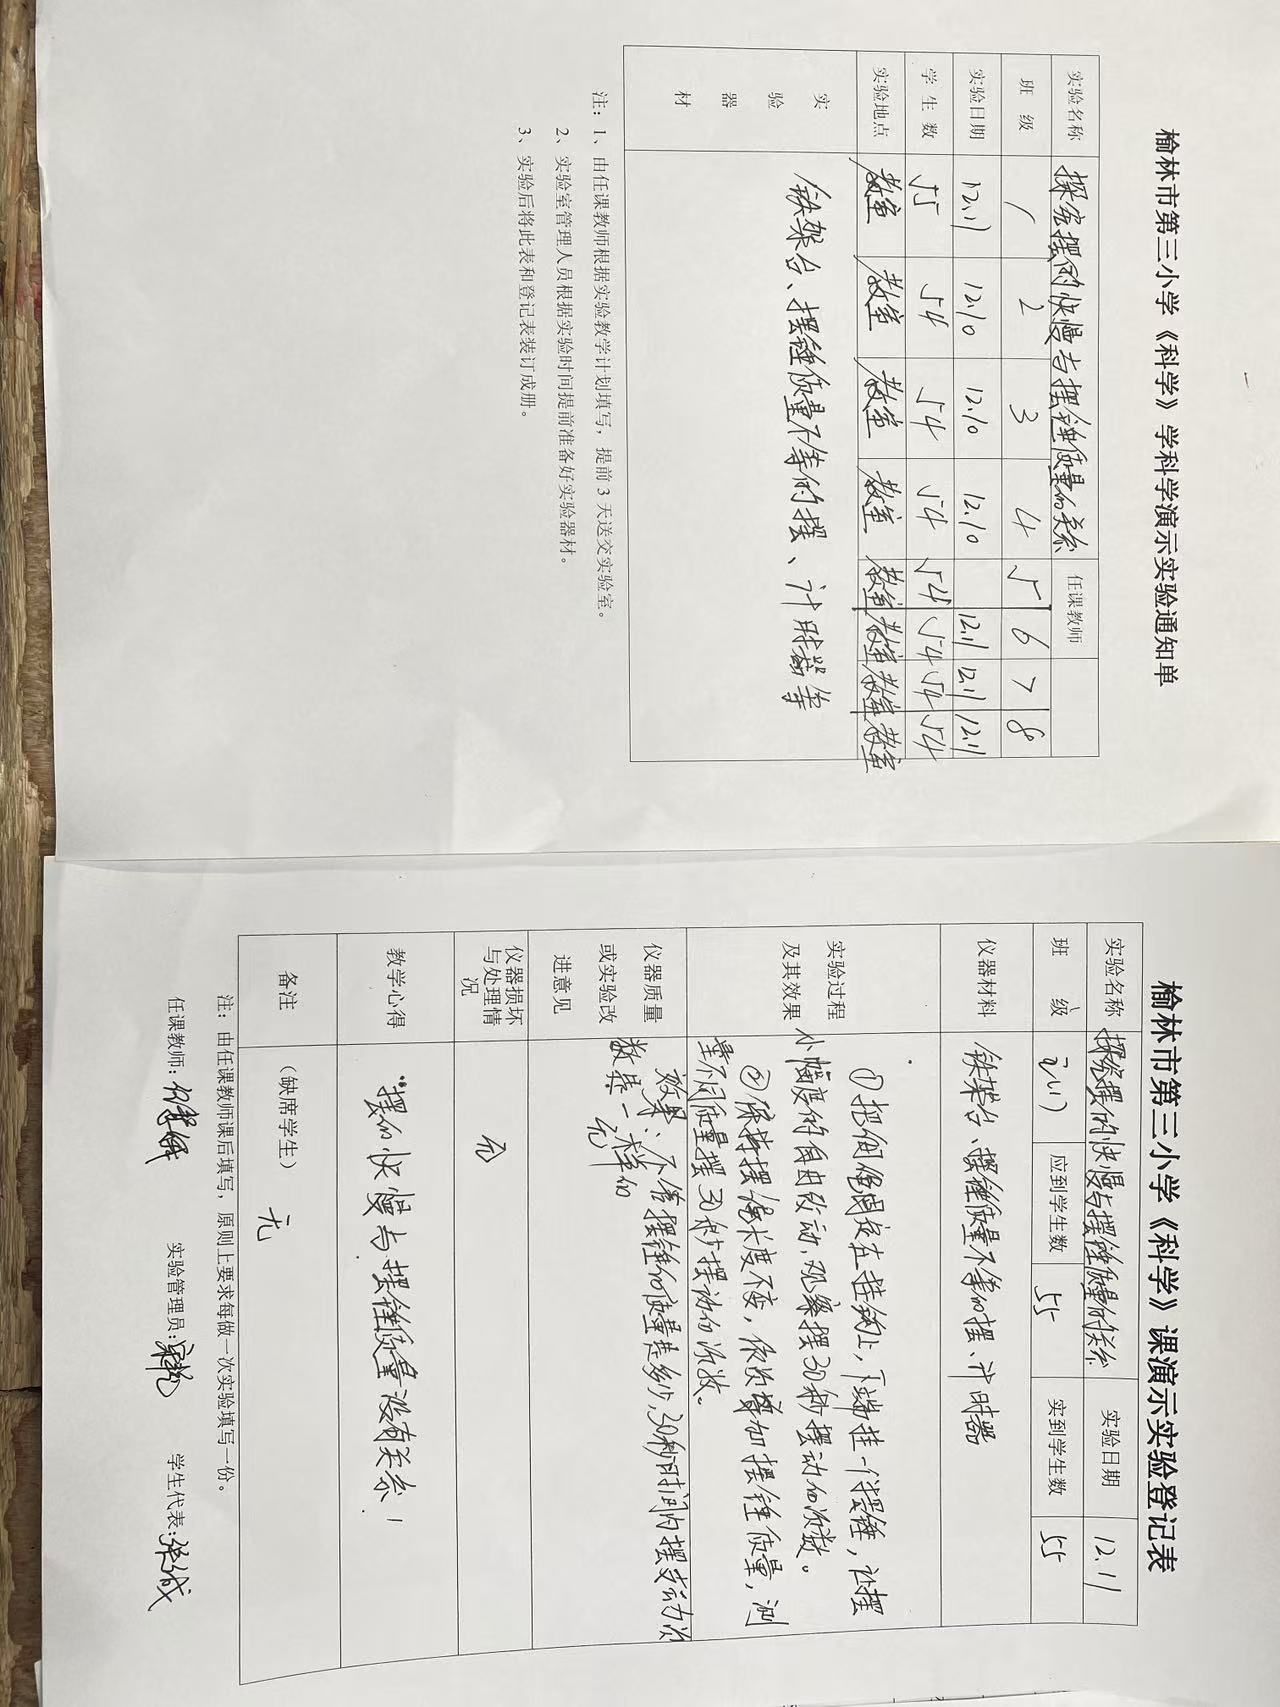 榆林市第三小学《科学》学科学演示实验通知单
实验名称 探究摆的快慢与摆锤质量的关系 任课教师
班 级 1 2 3 4 5 6 7 8
实验日期 12.11 12.10 12.10 12.10 12.11 12.11 12.11
学 生 数 55 54 54 54 54 54 54 54
实验地点 教室 教室 教室 教室 教室 教室 教室 教室
实验器材 铁架台、摆锤质量不等的摆、计时器等
注：1、由任课教师根据实验教学计划填写，提前 3 天送交实验室。
2、实验室管理人员根据实验时间提前准备好实验器材。
3、实验后将此表和登记表装订成册。
榆林市第三小学《科学》课演示实验登记表
实验名称 探究摆的快慢与摆锤质量的关系 实验日期 12.11
班 级 应到学生数 55 实到学生数 55
仪器材料 铁架台、摆锤质量不等的摆、计时器
实验过程及其效果 ①把细绳固定在挂钩上，下端挂一个摆锤，让摆
小幅度的自由改动，观察摆30秒摆动的次数。
②保持摆绳长度不变，依次增加摆锤质量，测
量不同质量摆30秒摆动的次数。
效果：不管摆锤的质量是多少，30秒时间内摆动次
数是一样的
仪器质量或实验改进意见 无
仪器损坏与处理情况 无
教学心得 "摆的快慢与摆锤质量没有关系！
备注 （缺席学生） 无
注：由任课教师课后填写，原则上要求每做一次实验填写一份。
任课教师： 实验管理员： 学生代表：